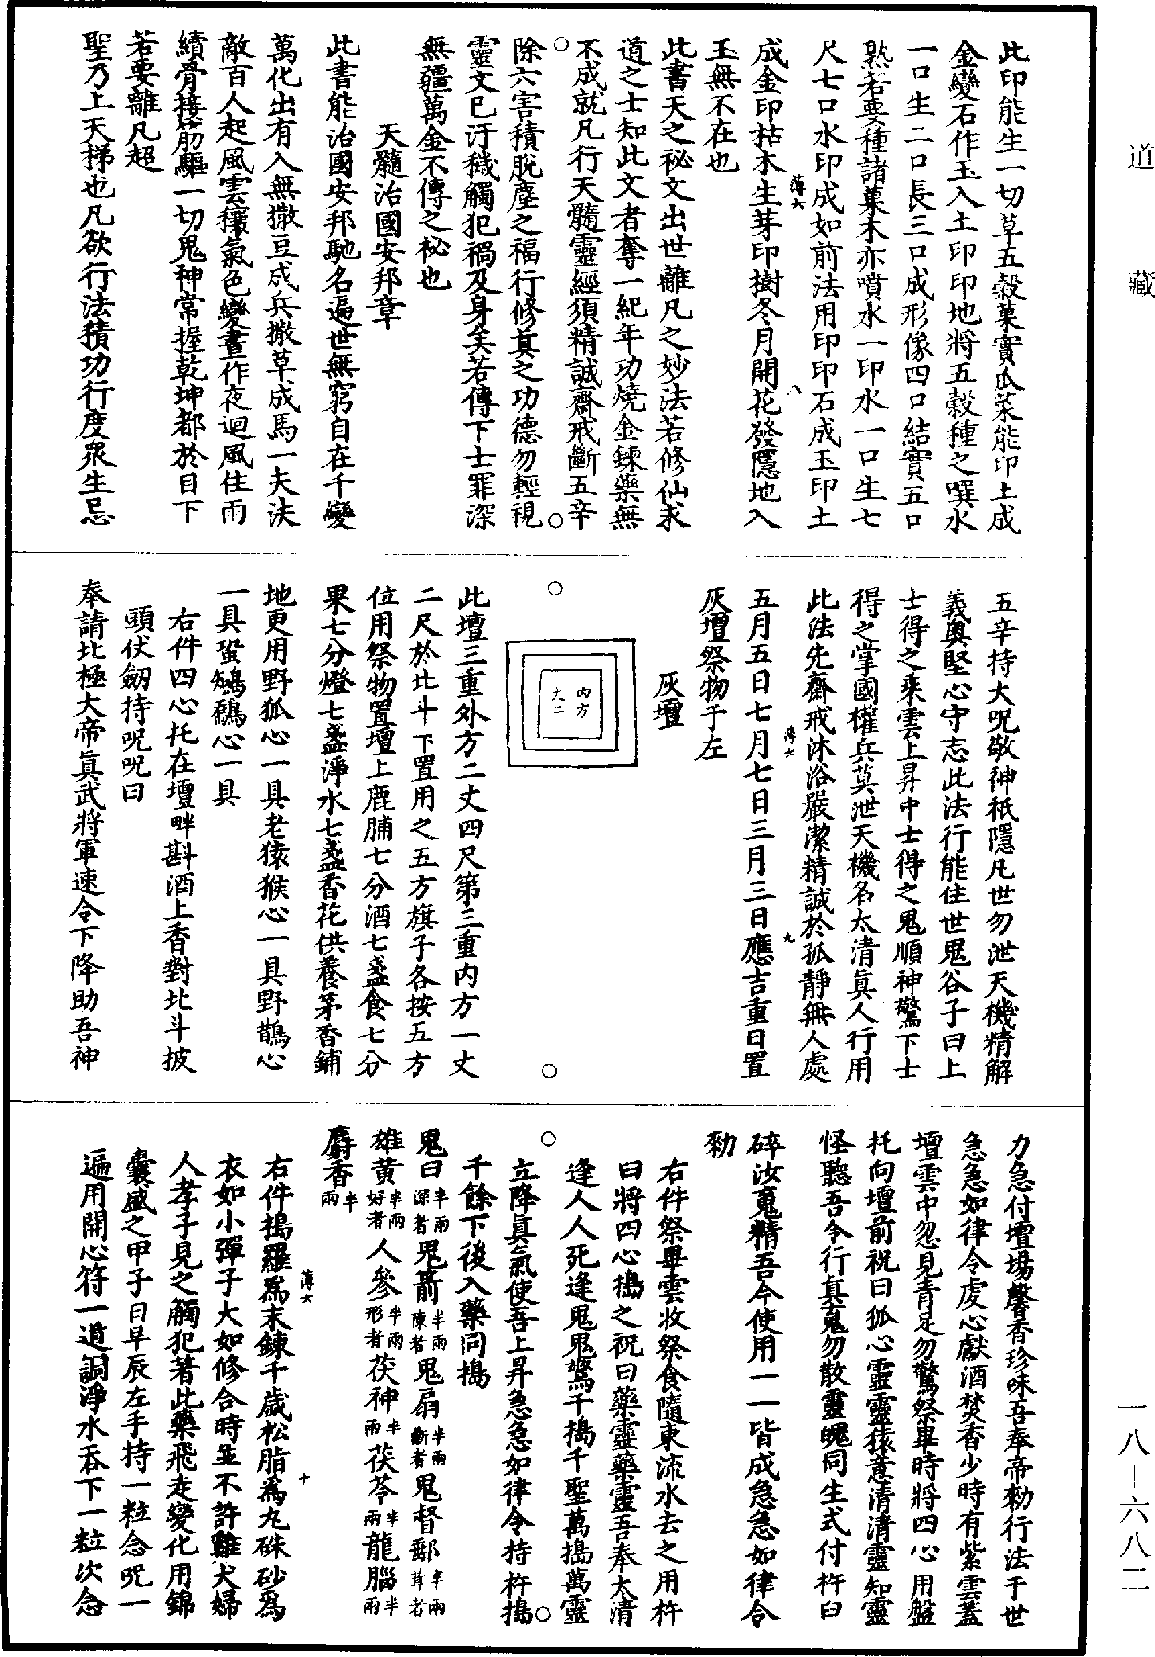 道藏
此印能生一切草五穀菓實瓜菜能印土成
金變石作玉入土印印地將五穀種之噀水
一口生二口長三口成形像四口結實五口
熟若要種諸菓木亦噴水一印水一口生七
尺七口水印成如前法用印印石成玉印土
薄六
八
成金印枯木生芽印樹冬月開花發隱地入
玉無不在也
此書天之秘文出世離凡之妙法若修仙求
道之士知此文者奪一紀年功燒金鍊藥無
不成就凡行天髓靈經須精誠齋戒斷五辛
除六害積脫塵之福行修真之功德勿輕視
靈文已汙穢觸犯禍及身矣若傳下士罪深
無疆萬金不傳之祕也
天髓治國安邦章
此書能治國安邦馳名遍世無窮自在千變
萬化出有入無撒豆成兵撒草成馬一夫法
敵百人起風雲攘氣色變晝作夜迴風住雨
續骨接筋驅一切鬼神常握乾坤都於目下
若要離凡超
聖乃上天梯也凡欲行法積功行度眾生忌
五辛持大呪敬神祇隱凡世勿泄天機精解
義奧堅心守志此法行能住世鬼谷子曰上
士得之乘雲上昇中士得之鬼順神驚下士
得之掌國權兵莫泄天機名太清真人行用
此法先齋戒沐浴嚴潔精誠於孤靜無人處
薄六
九
五月五日七月七日三月三日應吉重日置
灰壇祭物于左
灰壇
內方
丈二
此壇三重外方二丈四尺第三重內方一丈
二尺於北斗下置用之五方旗子各按五方
位用祭物置壇上鹿脯七分酒七盞食七分
果七分燈七盞淨水七盞香花供養茅香鋪
地更用野狐心一具老猿猴心一具野鵲心
一具鵁鶄心一具
右件四心托在壇畔斟酒上香對北斗披
頭伏劒持呪呪曰
奉請北極大帝真武將軍速令下降助吾神
力急付壇場馨香珍味吾奉帝勑行法于世
急急如律令虔心獻酒焚香少時有紫雲蓋
壇雲中忽見青足勿驚祭畢時將四心用盤
托向壇前祝曰狐心靈靈猿意清清靈知靈
怪聽吾令行真鬼勿散靈魄同生式付杵臼
碎汝䰟精吾今使用一一皆成急急如律令
勑
右件祭畢雲收祭食隨東流水去之用杵
臼將四心搗之祝曰藥靈藥靈吾奉太清
逢人人死逢鬼鬼驚千搗千聖萬搗萬靈
立降真氣使吾上昇急急如律令持杵搗
千餘下後入藥同搗
鬼臼半兩深者鬼箭半兩陳者鬼扇半兩斷者鬼督郵半兩茸者
雄黃半兩好者人參半兩形者茯神半兩茯苓半兩龍腦半兩
麝香半兩
右件搗羅為末鍊千歲松脂為丸硃砂為
薄六
十
衣如小彈子大如修合時並不許雞犬婦
人孝子見之觸犯著此藥飛走變化用錦
囊盛之甲子日早辰左手持一粒念呪一
遍用開心符一道調淨水吞下一粒次念
一八—六八二